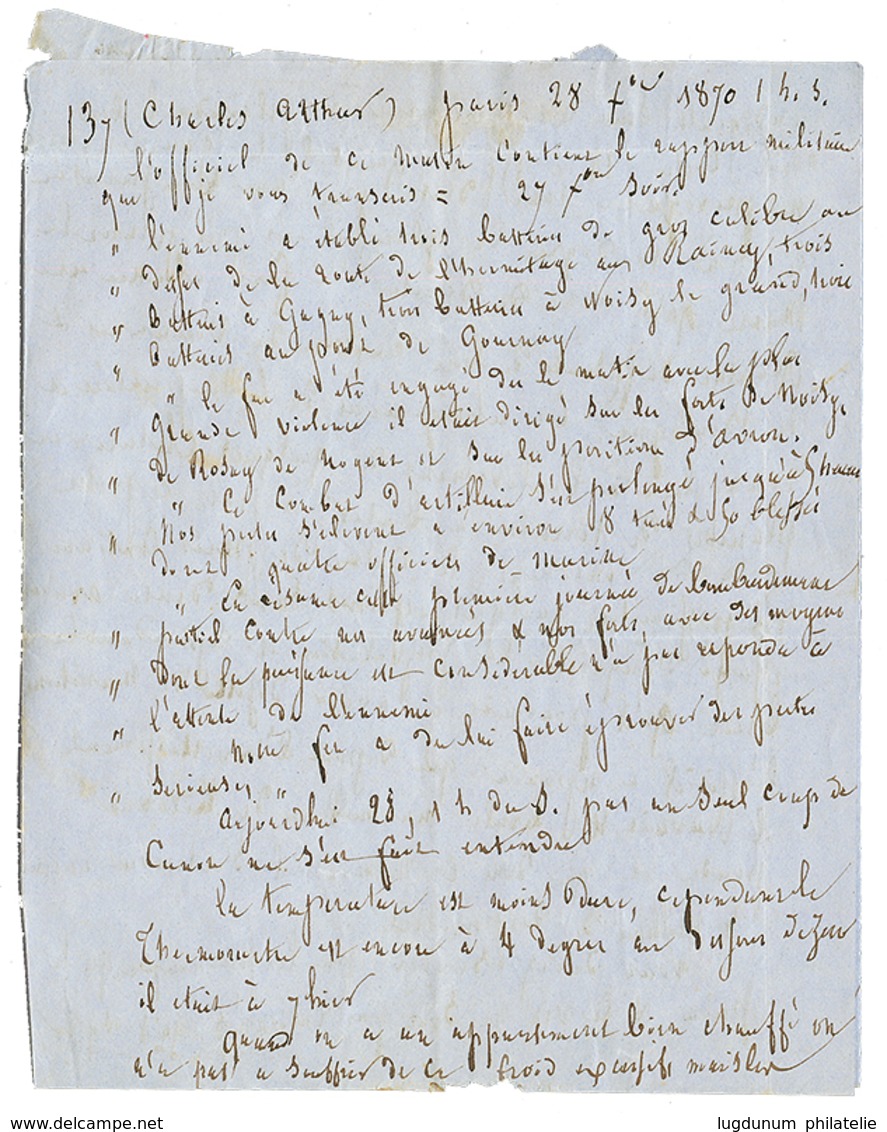 137 (Charles Arthur) paris 28 Xbre 1870 1 h. s.
l'officiel de ce matin contient le rapport militaire
que je vous transcris = 27 Xbre Soir
" l'ennemi a établi trois batteries de gros calibre au
" dessus de la route de l'hermitage au Raincy, trois
" batteries à Gagny, trois batteries à Noisy le grand, trois
" batteries au pont de Gournay
" le feu a été engagé dès le matin avec la plus
" grande violence il était dirigé sur les forts de Noisy,
" de Rosny de Nogent et sur les positions d'avron.
" Ce combat d'artillerie s'est prolongé jusqu'à 5 heures
" Nos pertes s'élèvent à environ 8 tués & 50 blessés
dont quatre officiers de marine
" En résumé cette première journée de bombardement
" partiel contre nos avancées & nos forts, avec des moyens
" dont la puissance est considérable n'a pas répondu à
" l'attente de l'ennemi
Notre feu a du lui faire éprouver des pertes
" Serieuses "
Aujourdhui 28, 1 h du S. pas un seul coup de
Canon ne s'est fait entendre
la température est moins dure, cependant le
Thermometre est encore à 4 degrés au dessous de zero
il etait à 7 hier
quand on a un appartement bien chauffé on
n'a pas a souffrir de ce froid excessif mais les
www.delcampe.net
lugdunum philatelie